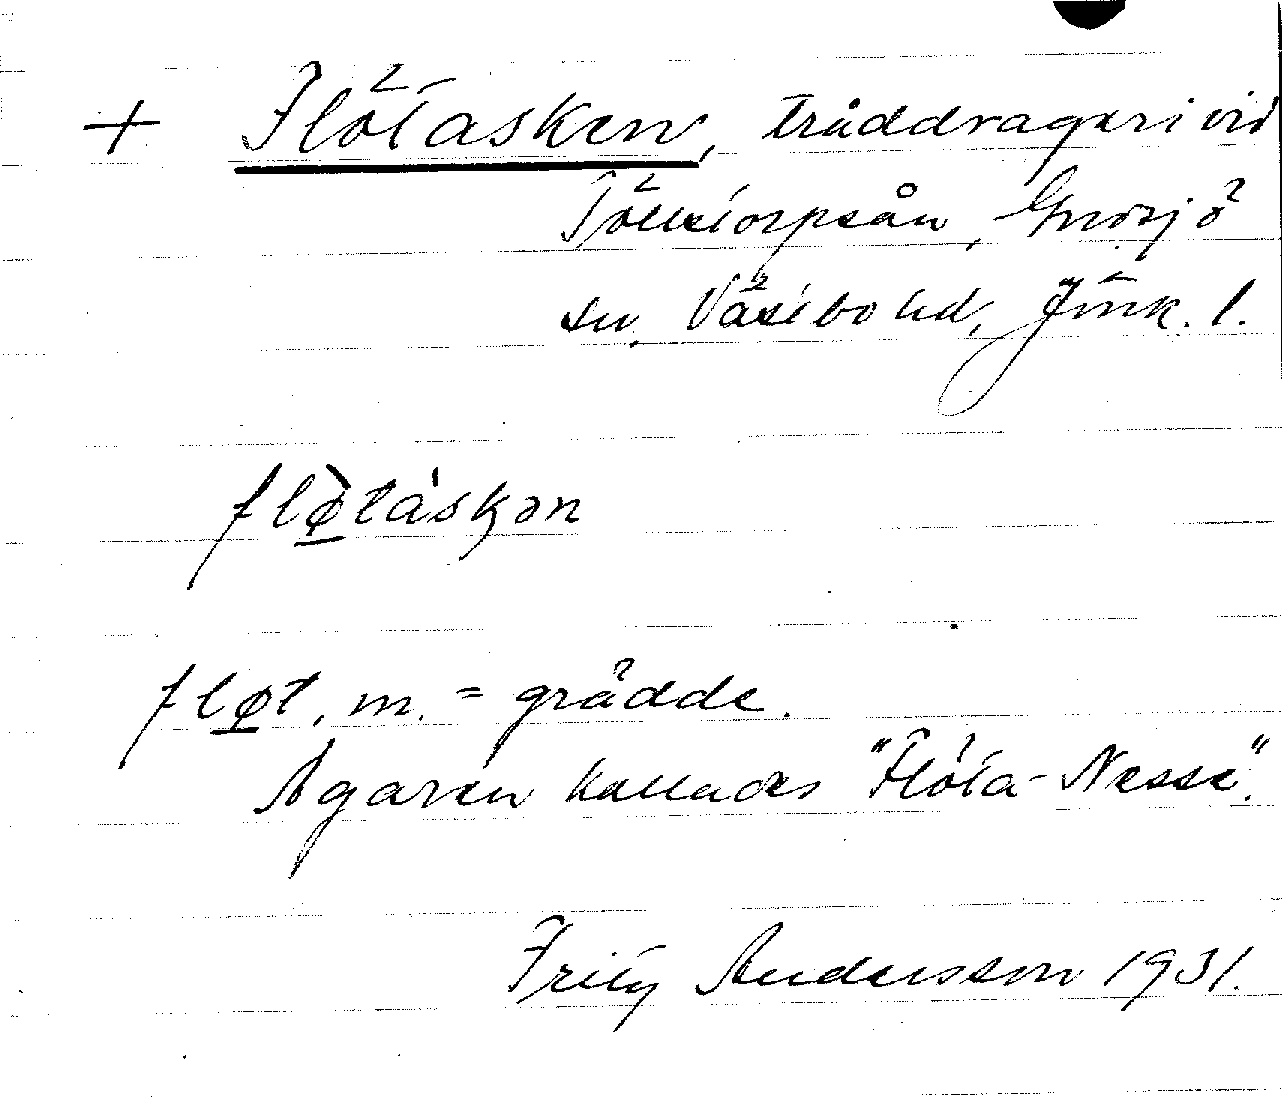 + Flötasken, tråddrageri vid
Töllstorpsån, Gnosjö
sn, Västbo hd, Jönk. l.
flø̀táskən
fløt, m. = grädde.
Ägaren kallades "Flöta-Nesse".
Fritz Andersson 1931.